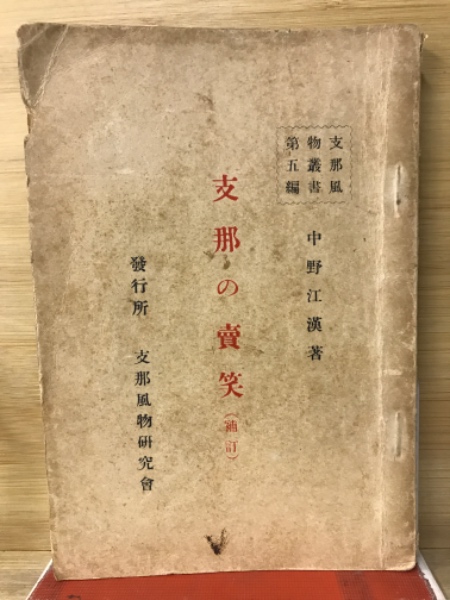 支那風
物叢書
第五編
中野江漢著
支那の賣笑(補訂)
發行所 支那風物研究會